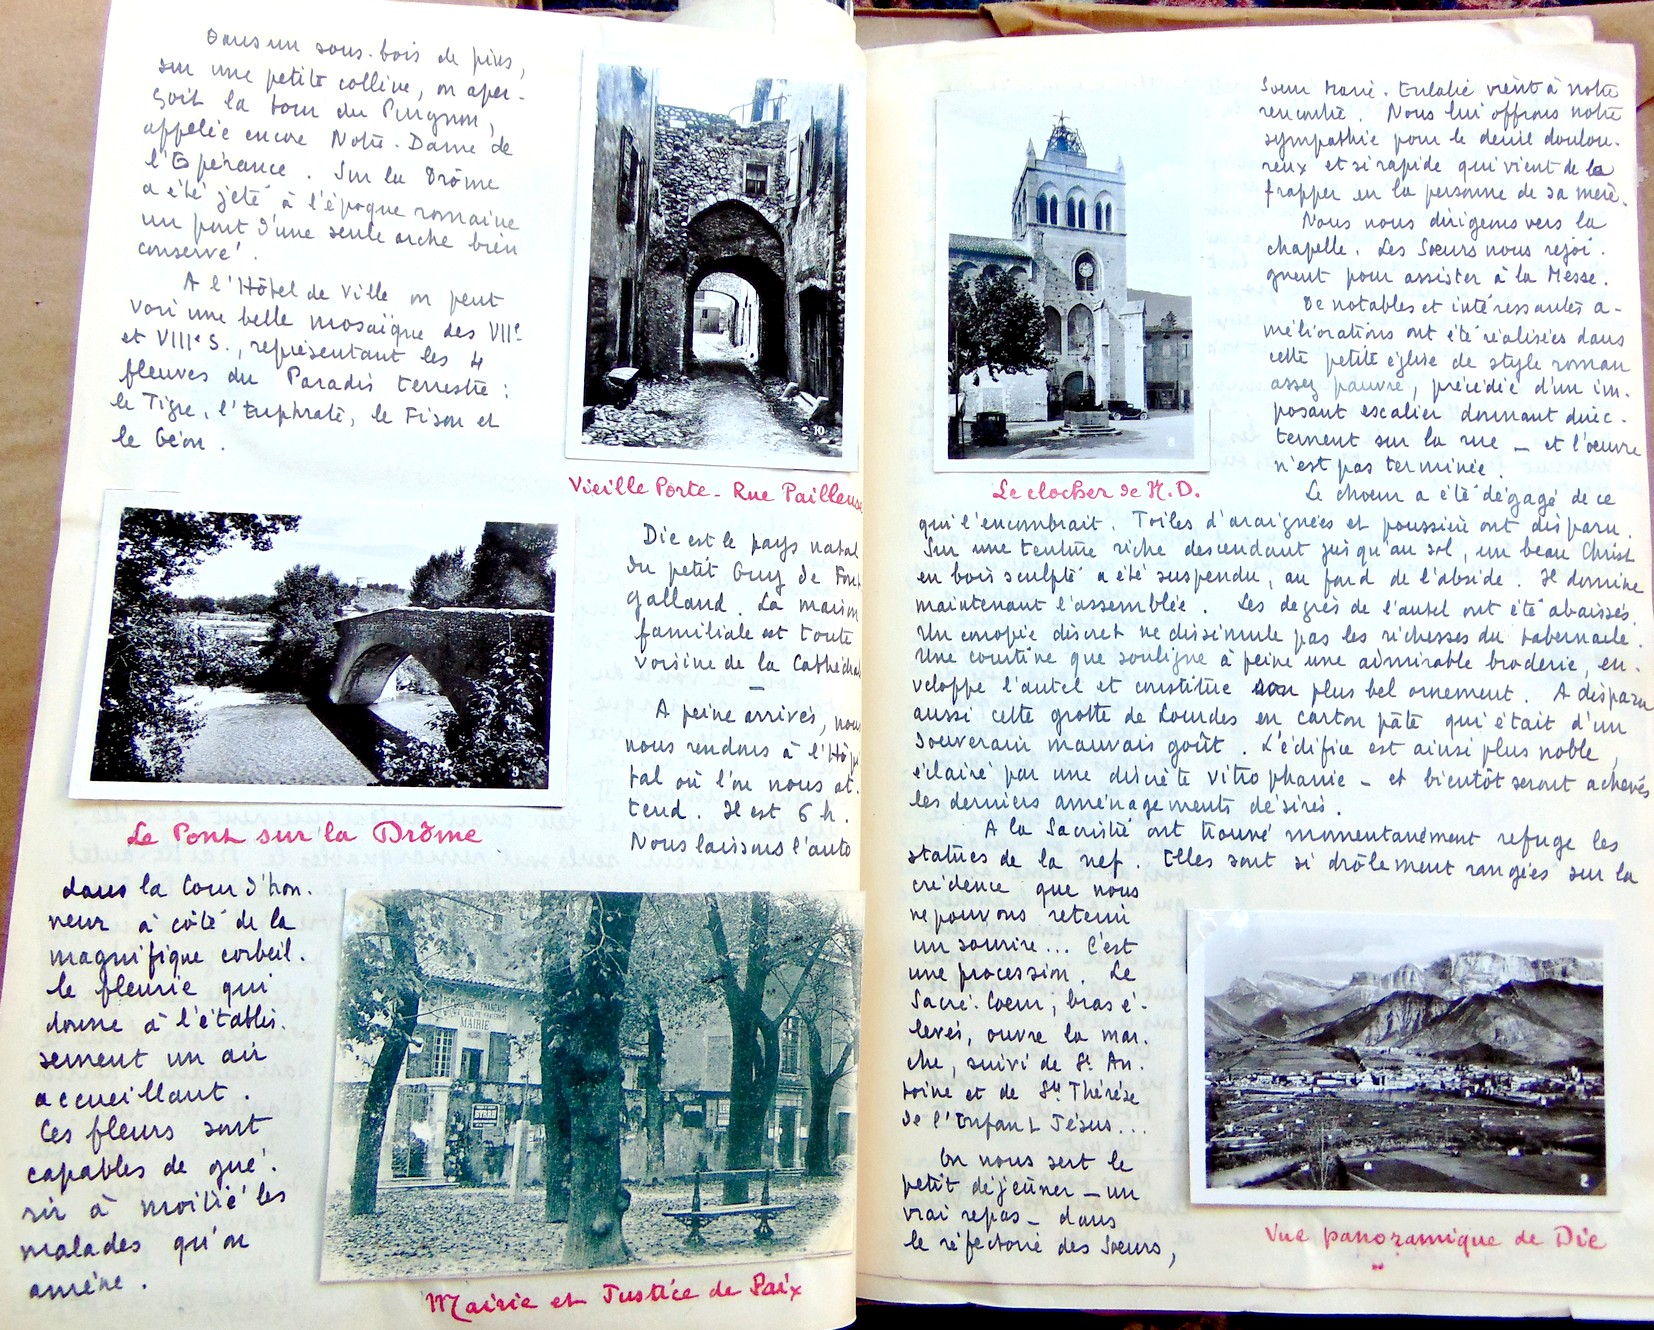 Dans un sous-bois de pins,
sur une petite colline, on aper-
çoit la tour du Purgnon,
appelée encore Notre-Dame de
l'Espérance. Sur la Drôme
a été jeté à l'époque romaine
un pont d'une seule arche bien
conservé.
A l'Hôtel de Ville on peut
voir une belle mosaïque des VIIe
et VIIIe s., représentant les 4
fleuves du Paradis terrestre :
le Tigre, l'Euphrate, le Fison et
le Géon.
10
Vieille Porte - Rue Pailleuse
9
Le Pont sur la Drôme
Die est le pays natal
du petit Guy de Font
galland. La maison
familiale est toute
voisine de la Cathédrale
A peine arrivés, nous
nous rendons à l'Hôpi
tal où l'on nous at-
tend. Il est 6 h.
Nous laissons l'auto
dans la Cour d'hon-
neur à côté de la
magnifique corbeil-
le fleurie qui
donne à l'établis-
sement un air
accueillant.
Ces fleurs sont
capables de gué-
rir à moitié les
malades qu'on
amène.
MAIRIE
BYRRH
Mairie et Justice de Paix
8
Le clocher de N.D.
Sœur Marie-Eulalie vient à notre
rencontre. Nous lui offrons notre
sympathie pour le deuil doulou-
reux et si rapide qui vient de la
frapper en la personne de sa mère.
Nous nous dirigeons vers la
chapelle. Les Sœurs nous rejoi-
gnent pour assister à la Messe.
De notables et intéressantes a-
méliorations ont été réalisées dans
cette petite église de style roman
assez pauvre, précédée d'un im-
posant escalier donnant direc-
tement sur la rue - et l'œuvre
n'est pas terminée.
Le chœur a été dégagé de ce
qui l'encombrait. Toiles d'araignées et poussière ont disparu.
Sur une tenture riche descendant jusqu'au sol, un beau Christ
en bois sculpté a été suspendu, au fond de l'abside. Il domine
maintenant l'assemblée. Les degrés de l'autel ont été abaissés.
Un conopée discret ne dissimule pas les richesses du tabernacle.
Une courtine que souligne à peine une admirable broderie, en-
veloppe l'autel et constitue son plus bel ornement. A disparu
aussi cette grotte de Lourdes en carton pâte qui était d'un
souverain mauvais goût. L'édifice est ainsi plus noble,
éclairé par une discrète vitrophanie - et bientôt seront achevés
les derniers aménagements désirés.
A la Sacristie ont trouvé momentanément refuge les
statues de la nef. Elles sont si drôlement rangées sur la
crédence que nous
ne pouvons retenir
un sourire... C'est
une procession. Le
Sacré-Cœur, bras é-
levés, ouvre la mar-
che, suivi de St An-
toine et de Ste Thérèse
de l'Enfant Jésus...
On nous sert le
petit déjeûner - un
vrai repas - dans
le réfectoire des Sœurs,
2
Vue panoramique de Die